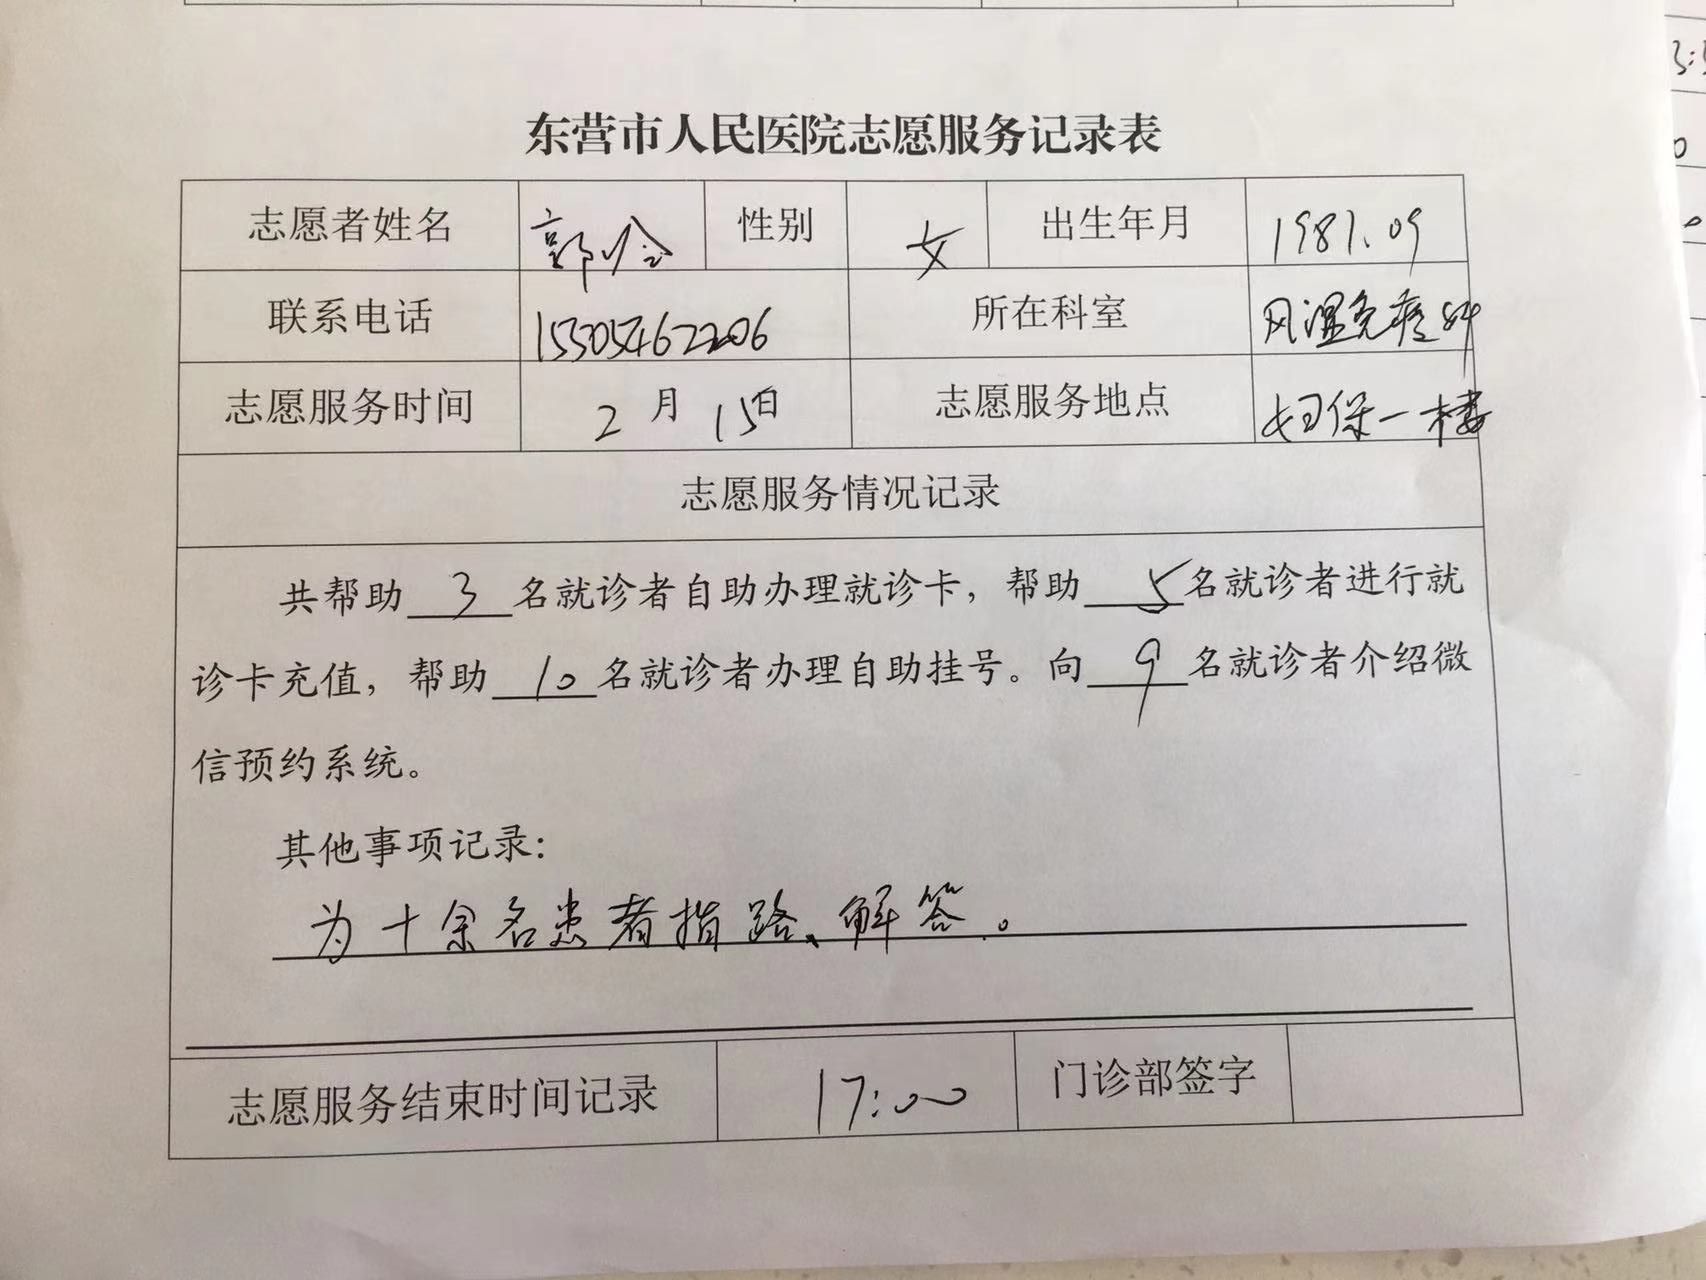 东营市人民医院志愿服务记录表
志愿者姓名 郭 性别 女 出生年月 1981.09
联系电话 15505462206 所在科室 风湿免疫科
志愿服务时间 2月15日 志愿服务地点 妇保一楼
志愿服务情况记录
共帮助 3 名就诊者自助办理就诊卡，帮助 5 名就诊者进行就
诊卡充值，帮助 10 名就诊者办理自助挂号。向 9 名就诊者介绍微
信预约系统。
其他事项记录：
为十余名患者指路、解答。
志愿服务结束时间记录 17:00 门诊部签字